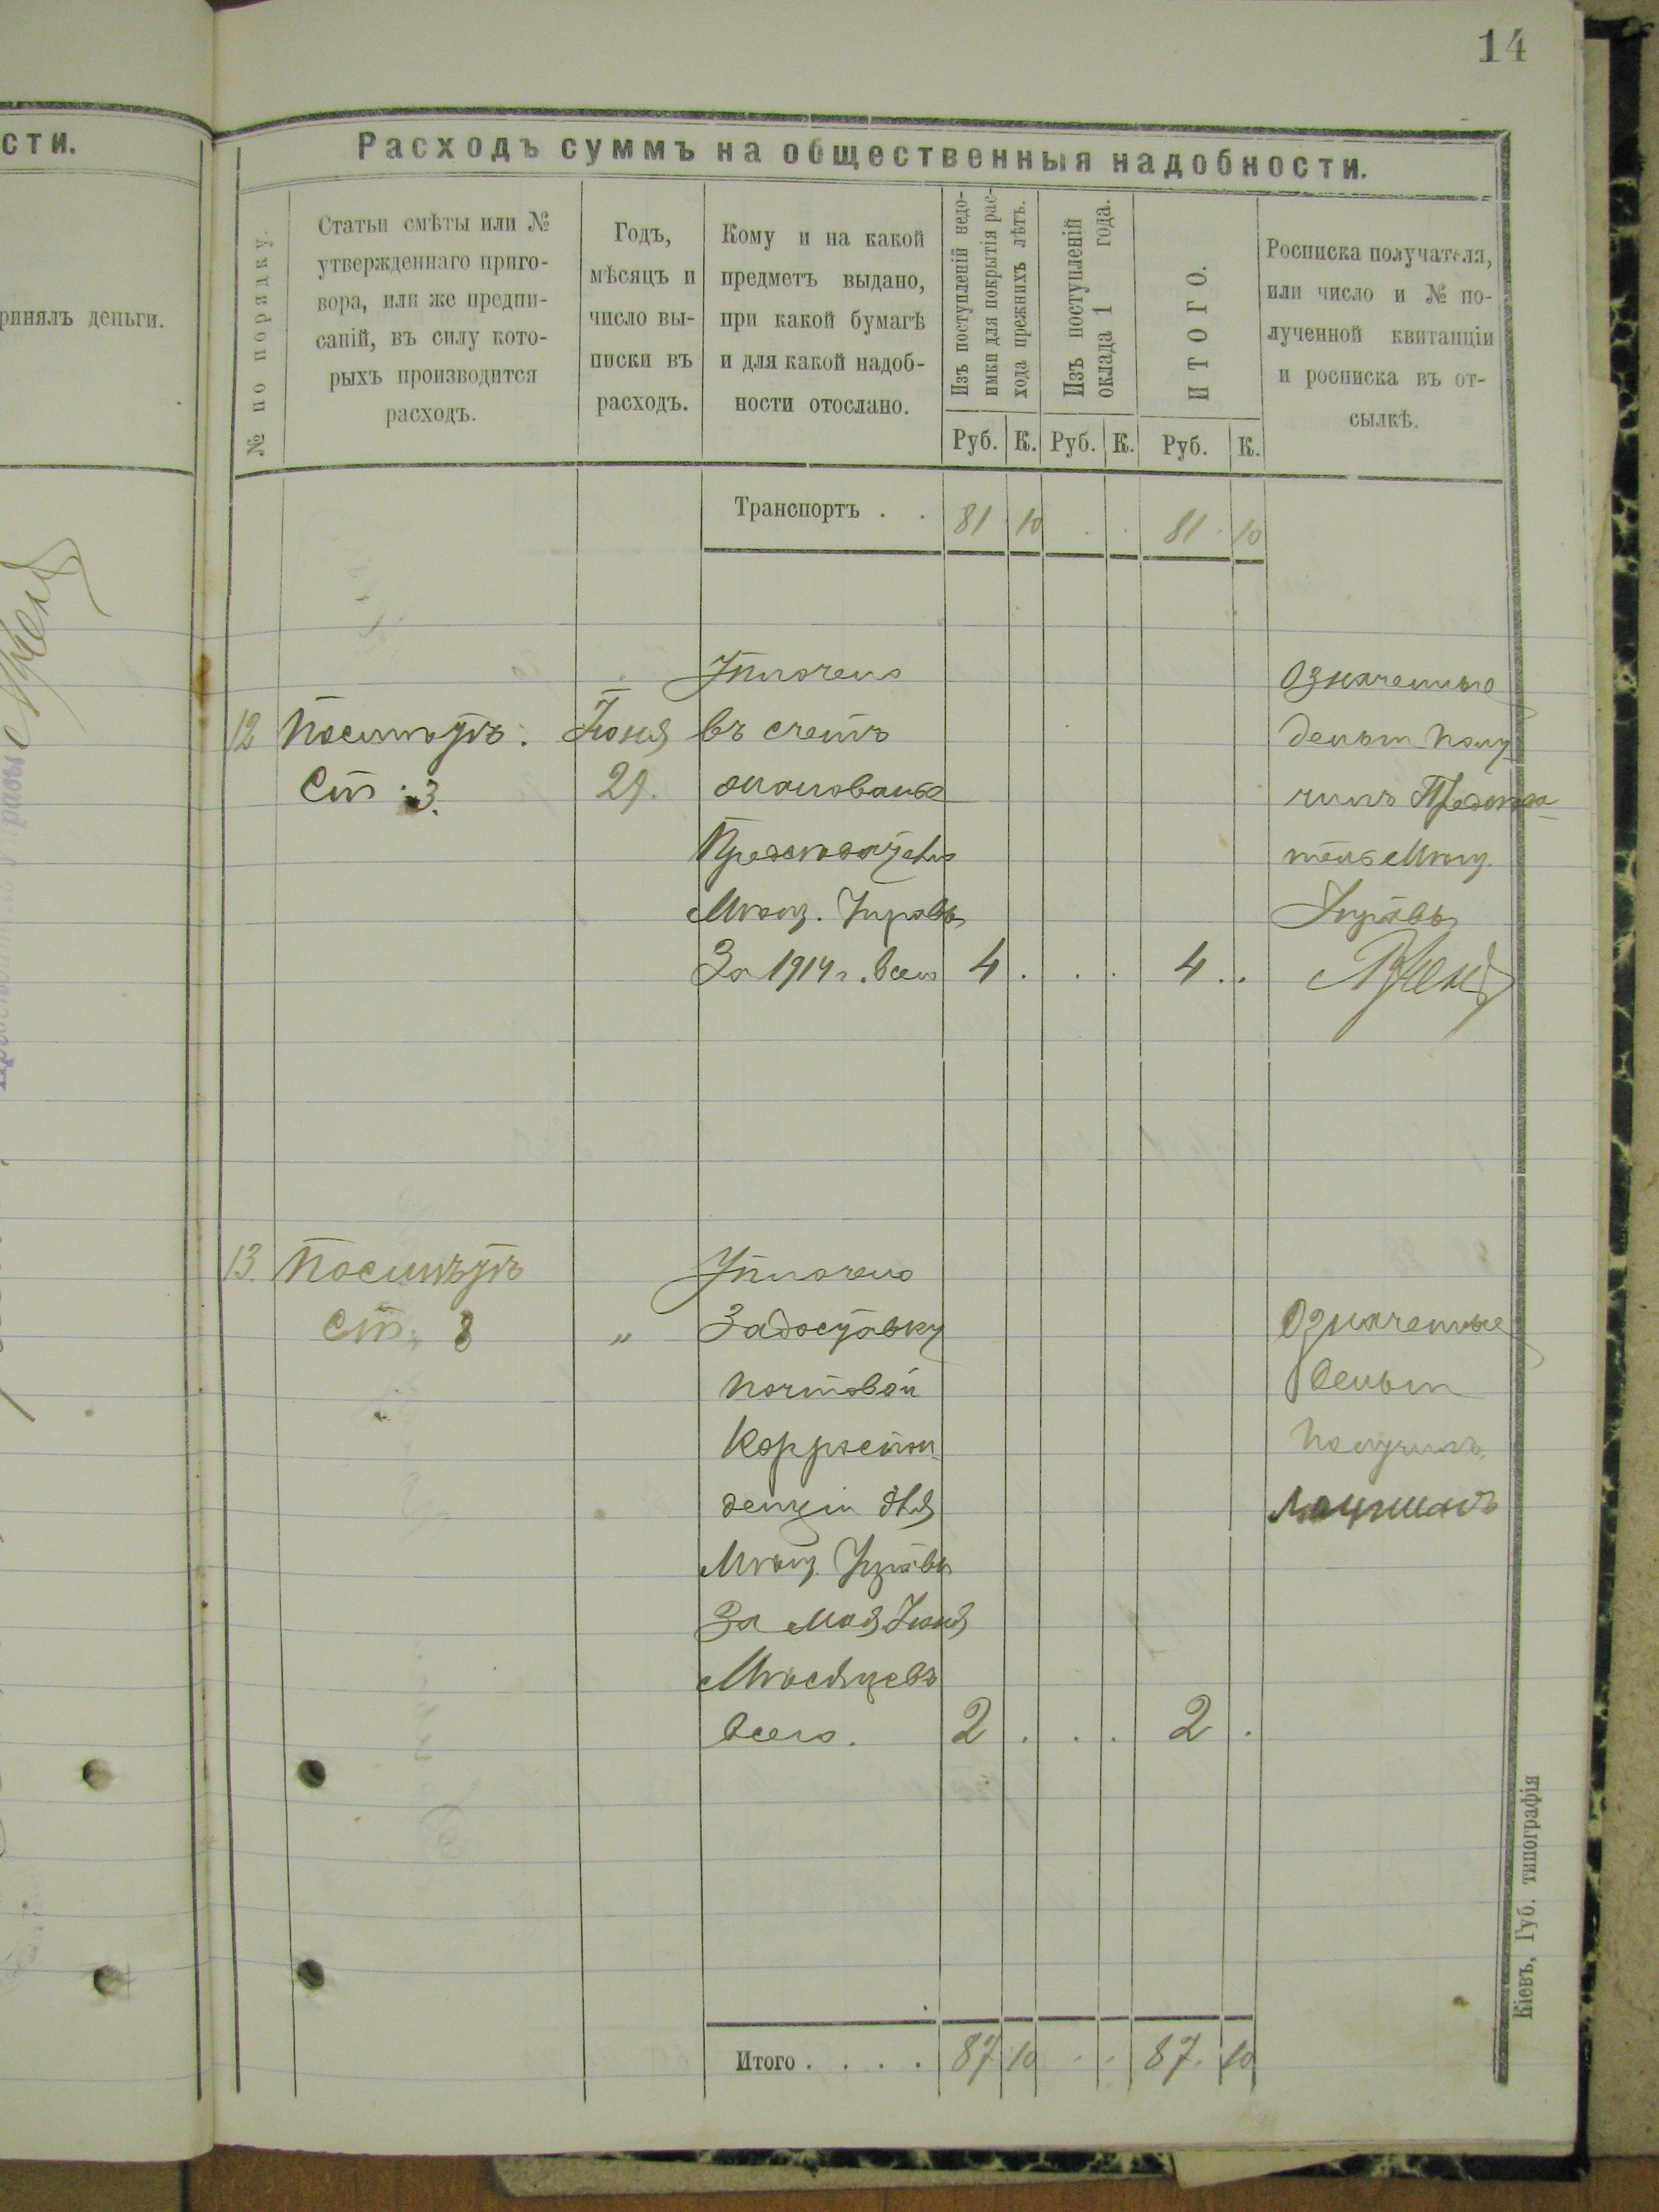 14
сти.
ринялъ деньги.
Расходъ суммъ на общественныя надобности.
№ по порядку.
Статьи смѣты или №
утвержденнаго приго-
вора, или же предпи-
саній, въ силу кото-
рыхъ производится
расходъ.
Годъ,
мѣсяцъ и
число вы-
писки въ
расходъ.
Кому и на какой
предметъ выдано,
при какой бумагѣ
и для какой надоб-
ности отослано.
Изъ поступленій недо-
имки для покрытія рас-
хода прежнихъ лѣтъ.
Изъ поступленій
оклада 1 года.
ИТОГО.
Росписка получателя,
или число и № по-
лученной квитанціи
и росписка въ от-
сылкѣ.
Руб. К. Руб. К. Руб. К.
Транспортъ . . 81 10 . . 81 10
Уплочено
12 Посмѣтѣ. Іюня въ счетъ
Ст. 3. 29. жалованье
Председателю
Мѣщ. Управы
За 1914 г. всего 4 . . . 4 . .
Означенные
деньги полу
чилъ Председа-
тель Мѣщ.
Управы
13. Посмѣтѣ Уплочено
Ст. 8 " За доставку
почтовой
Корреспон
денціи для
Мѣщ. Управы
За Май Іюнь
Мѣсяцевъ
всего. 2 . . . 2 .
Означенные
деньги
получилъ
Итого . . . . 87 10 . . 87. 10
Кіевъ, Губ. типографія